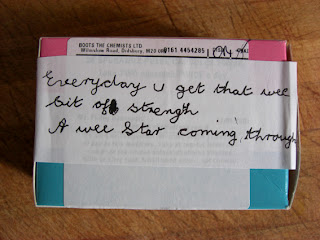 BOOTS THE CHEMISTS LTD
Wilmslow Road, Didsbury, M20 0161 4454285
Everyday u get that wee
bit of strength
A wee Star coming through